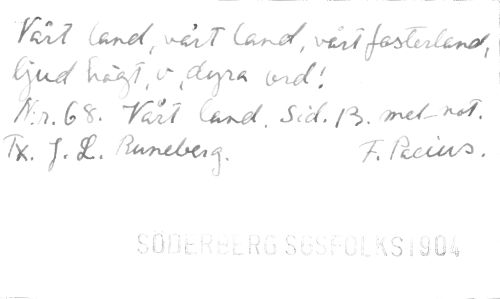 Vårt land, vårt land, vårt fosterland,
ljud högt, o, dyra ord!
Nr. 68. Vårt land. Sid. B. met-not.
Tx. J. L. Runeberg. F. Pacius.
SÖDERBERG SGSFOLKS1904